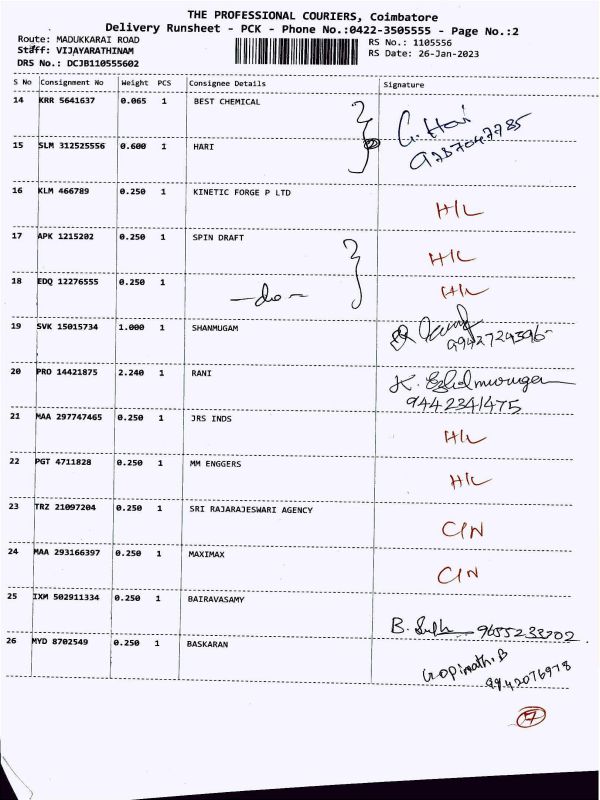 THE PROFESSIONAL COURIERS, Coimbatore
Delivery Runsheet - PCK - Phone No.:0422-3505555 - Page No.:2
Route: MADUKKARAI ROAD
RS No.: 1105556
Staff: VIJAYARATHINAM
RS Date: 26-Jan-2023
DRS No.: DCJB110555602
S No Consignment No Weight PCS Consignee Details Signature
14 KRR 5641637 0.065 1 BEST CHEMICAL G. Hari
15 SLM 312525556 0.600 1 HARI
16 KLM 466789 0.250 1 KINETIC FORGE P LTD H/L
17 APK 1215202 0.250 1 SPIN DRAFT H/L
18 EDQ 12276555 0.250 1 -do- H/L
19 SVK 15015734 1.000 1 SHANMUGAM
20 PRO 14421875 2.240 1 RANI K.
9442341475
21 MAA 297747465 0.250 1 JRS INDS H/L
22 PGT 4711828 0.250 1 MM ENGGERS H/L
23 TRZ 21097204 0.250 1 SRI RAJARAJESWARI AGENCY C/N
24 MAA 293166397 0.250 1 MAXIMAX C/N
25 IXM 502911334 0.250 1 BAIRAVASAMY B. 9655233702
26 MYD 8702549 0.250 1 BASKARAN Gopinath.B
9942076978
7